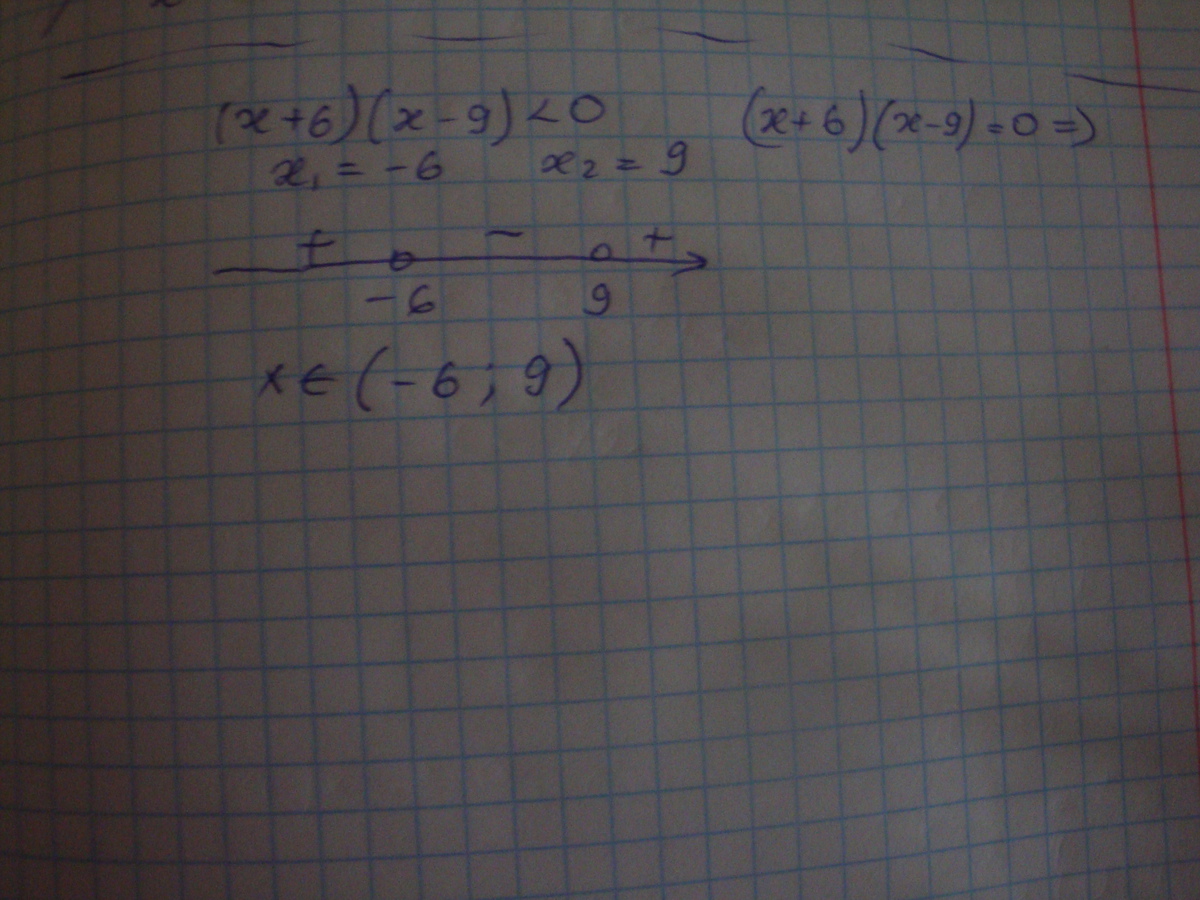 (x+6)(x-9)<0 (x+6)(x-9)=0=>
x₁ = -6 x₂ = 9
+ - +
-6 9
x∈(-6; 9)